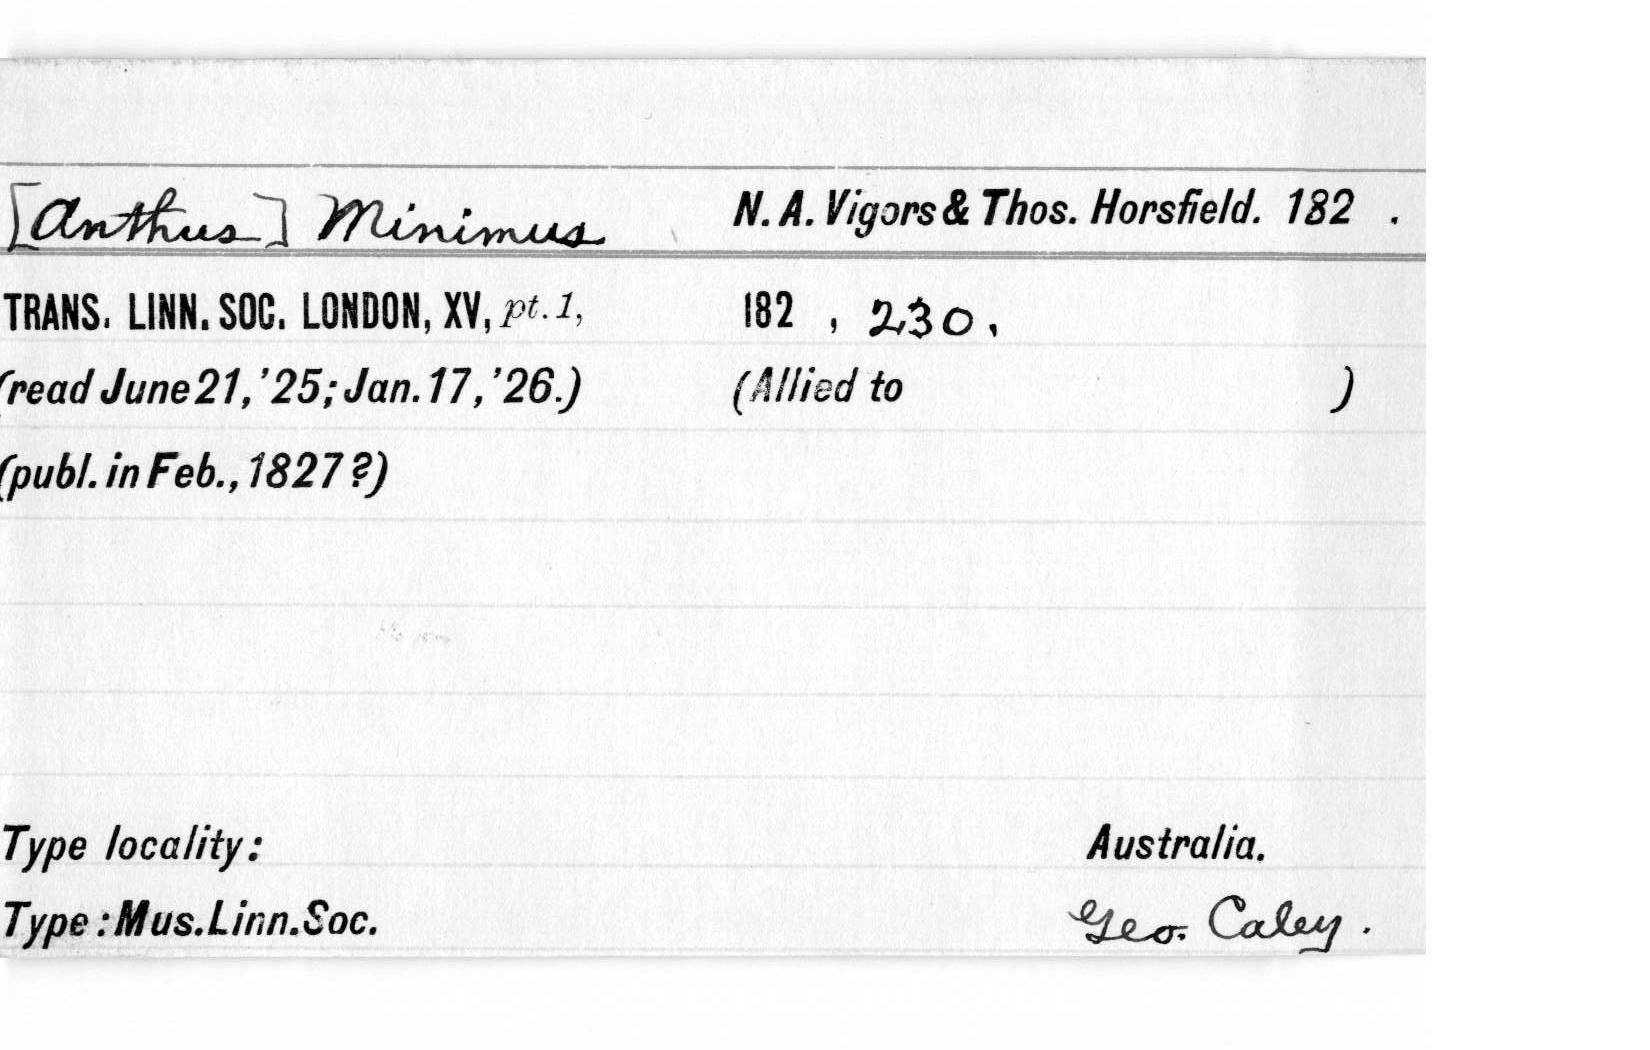 [Anthus] Minimus N. A. Vigors & Thos. Horsfield. 182 .
TRANS. LINN. SOC. LONDON, XV, pt. 1, 182 , 230.
(read June 21, '25; Jan. 17, '26.) (Allied to )
(publ. in Feb., 1827 ?)
Type locality: Australia.
Type : Mus. Linn. Soc. Geo. Caley .